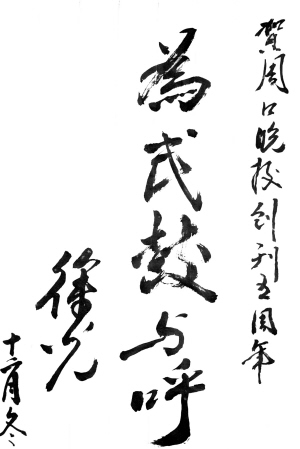 贺周口晚报创刊五周年
为民鼓与呼
徐光
十二月冬